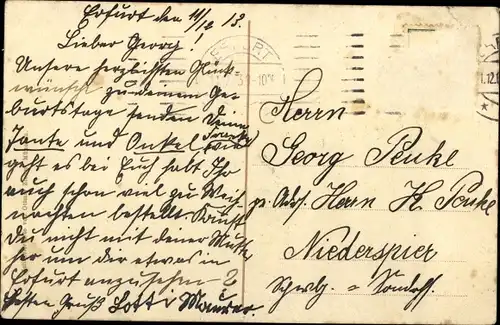 Erfurt den 11/12 13.
Lieber Georg!
Unsere herzlichsten Glück-
wünsche zu deinem Ge-
burtstage senden Deine
Tante und Onkel
geht es bei Euch habt Ihr
auch schon viel zu Weih-
nachten bestellt kommst
Du nicht mit deiner Mutter
her um der etwas in
Erfurt anzusehen?
besten Gruß Lotti Maurer.
ERFURT
Herrn
Georg Peuke
p. Adr. Herrn H. Peuke
Niederspier
Schwbg. - Sondersh.